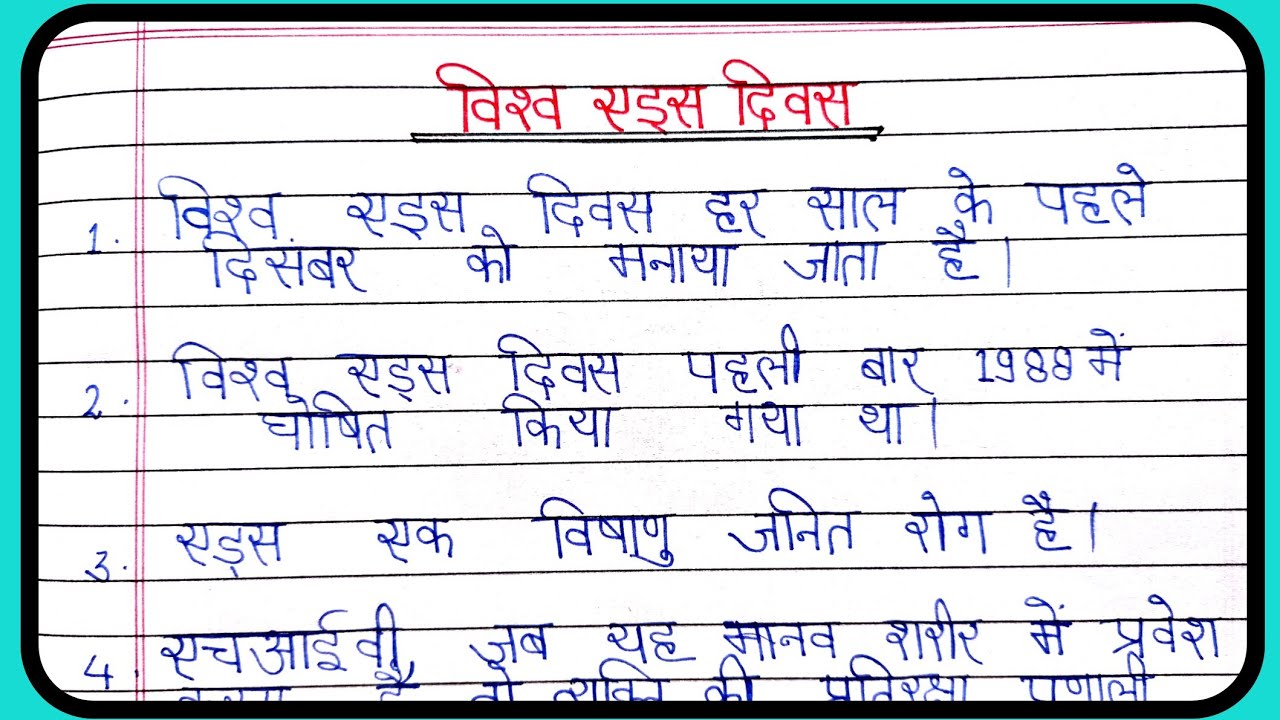 विश्व एड्स दिवस
1. विश्व एड्स दिवस हर साल के पहले
दिसंबर को मनाया जाता है।
2. विश्व एड्स दिवस पहली बार 1988 में
घोषित किया गया था।
3. एड्स एक विषाणु जनित रोग है।
4. एचआईवी, जब यह मानव शरीर में प्रवेश
करता है तो व्यक्ति की प्रतिरक्षा प्रणाली